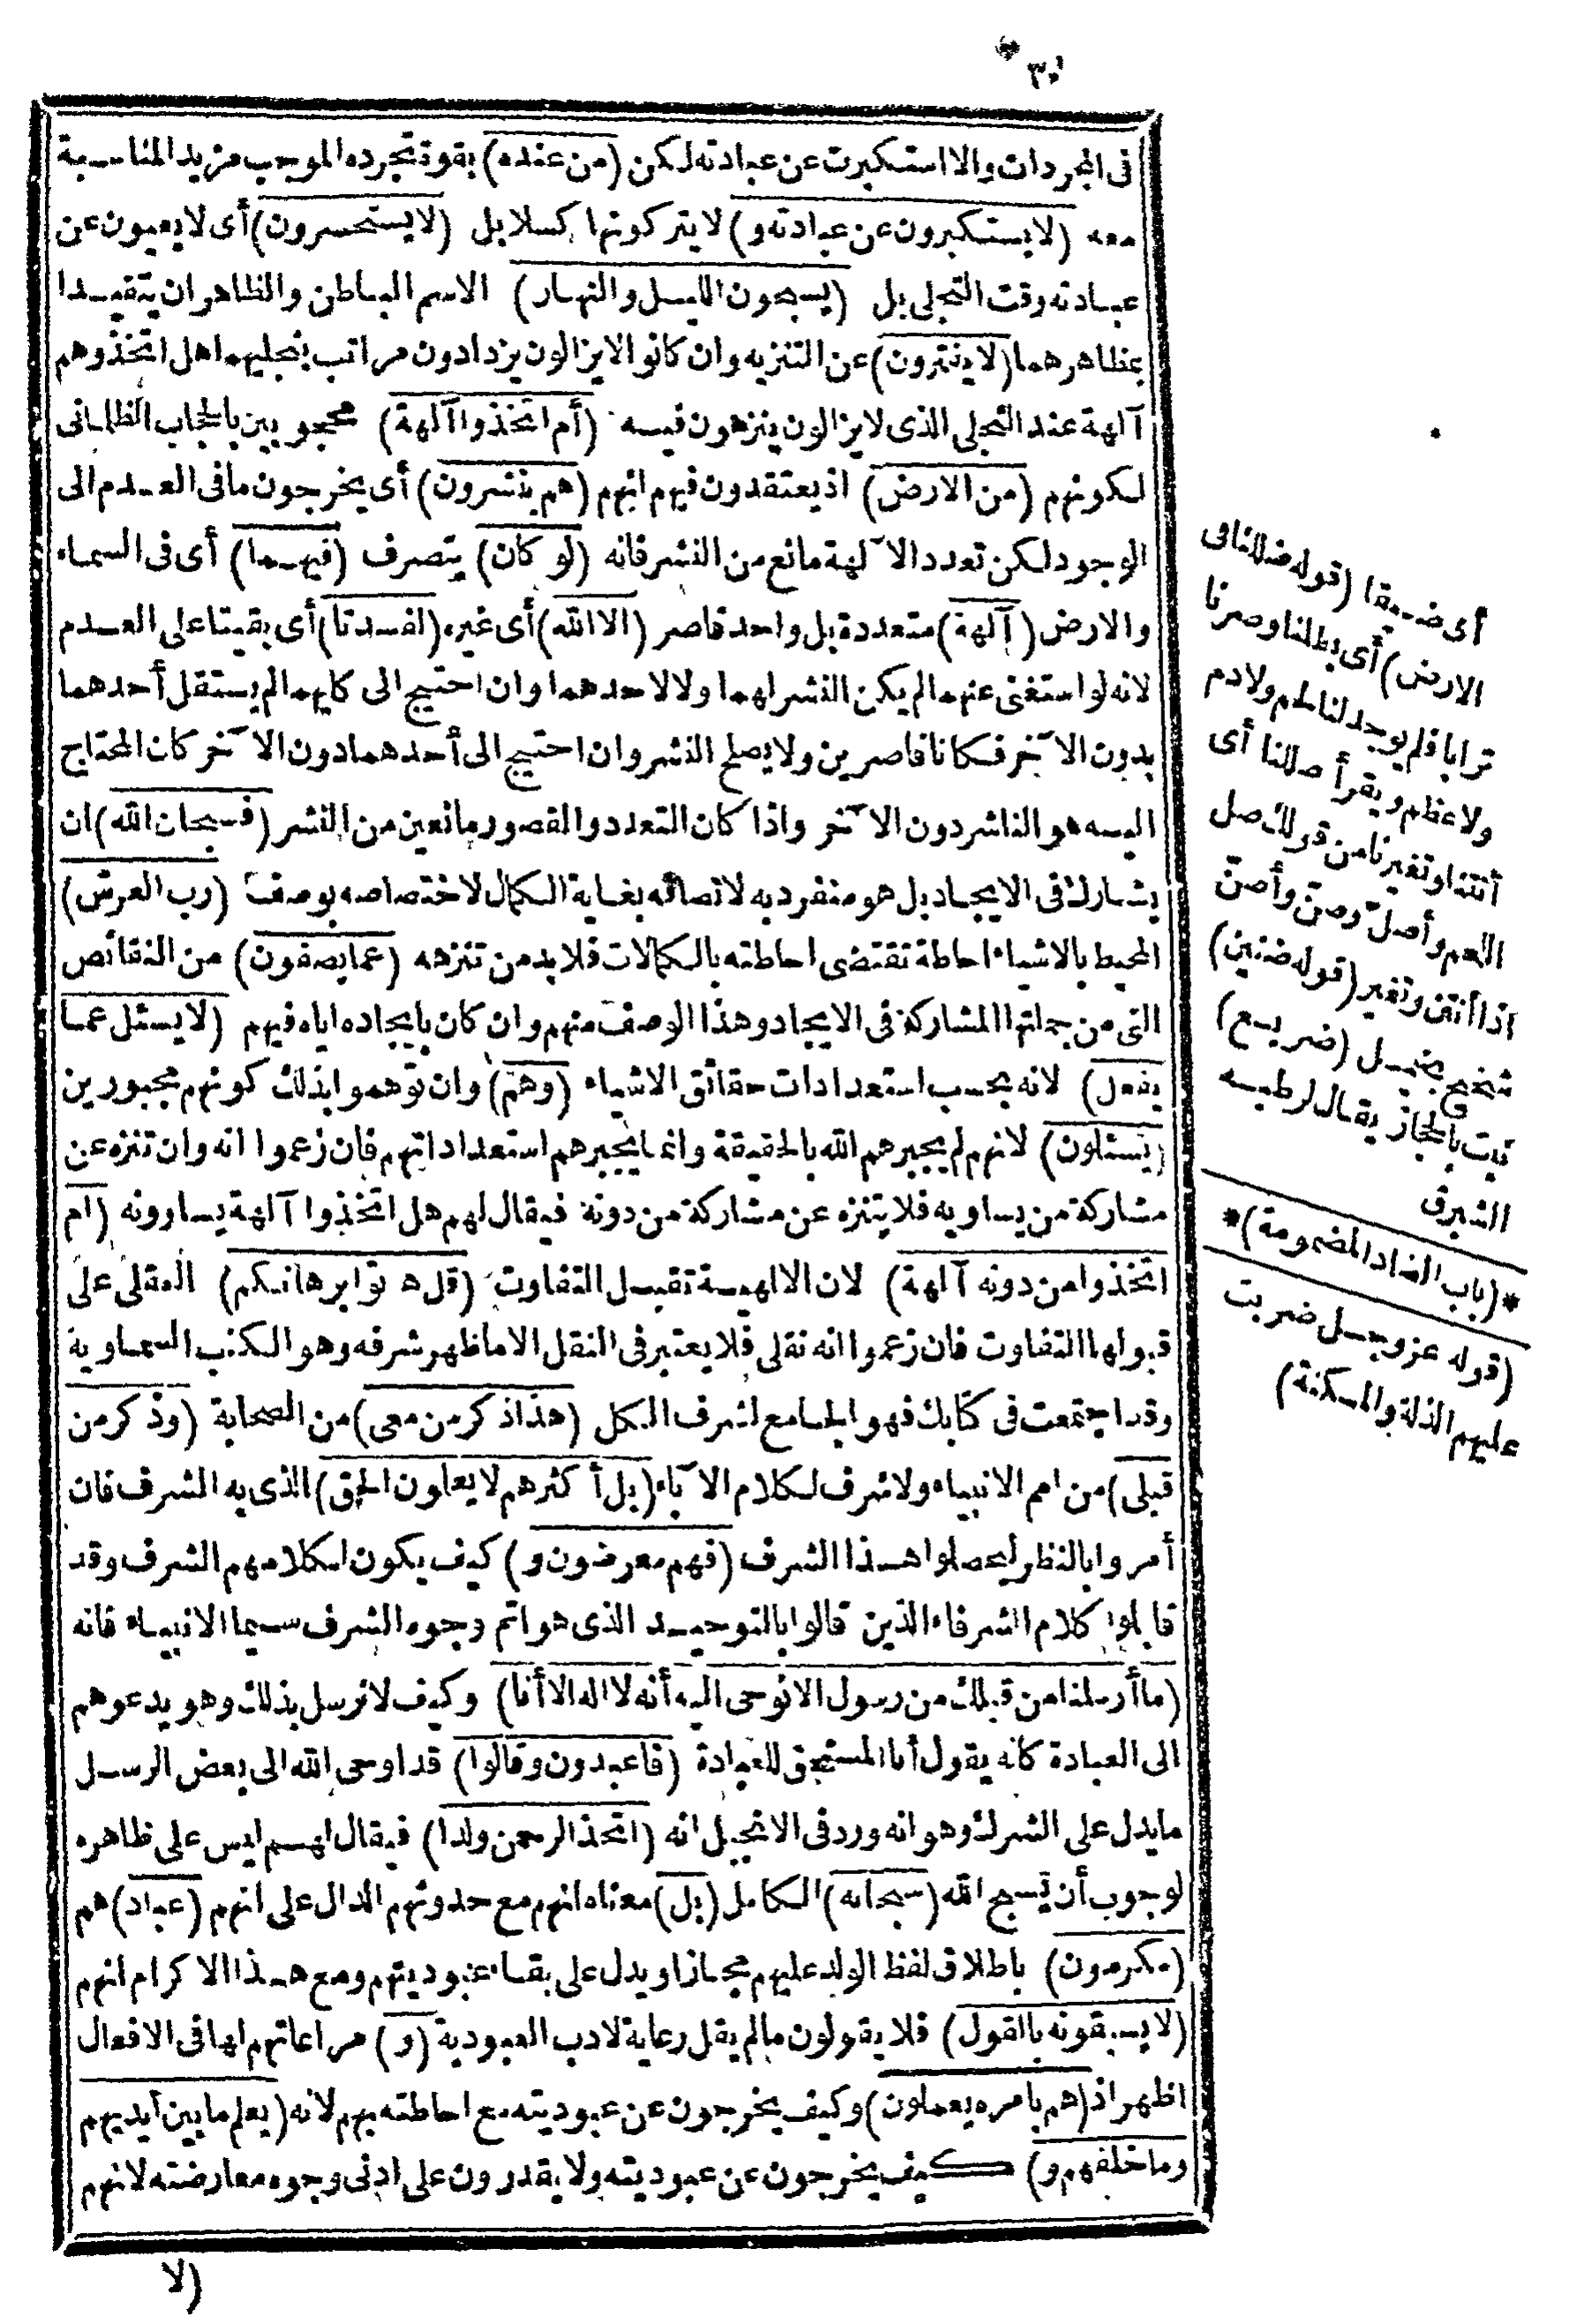 ٣٠
فى المجردات والا استكبرت عن عبادته لكن (من عنده) بقوة تجرده الموجب مزيد المناسبة
معه (لا يستكبرون عن عبادته و) لا يتركونها كسلا بل (لا يستحسرون) أى لا يعيون عن
عبادته وقت التجلى بل (يسبحون الليل والنهار) الاسم الباطن والظاهر ان يتقيدا
بمظاهرهما (لا يفترون) عن التنزيه وان كانوا لايزالون يزدادون مراتب بتجليهما هل اتخذوهم
آلهة عند التجلى الذى لايزالون ينزهون فيه (أم اتخذوا آلهة) محجوبين بالحجاب الظلمانى
لكونهم (من الارض) اذ يعتقدون فيهم انهم (هم ينشرون) أى يخرجون ما فى العدم الى
الوجود لكن تعدد الآلهة مانع من النشر فانه (لو كان) يتصرف (فيهما) أى فى السماء
والارض (آلهة) متعددة بل واحد قاصر (الا الله) أى غيره (لفسدتا) أى بقيتا على العدم
لانه لو استغنى عنهما لم يكن النشر لهما ولا لاحدهما وان احتيج الى كليهما لم يستقل أحدهما
بدون الآخر فكانا قاصرين ولا يصلح النشر وان احتيج الى أحدهما دون الآخر كان المحتاج
اليه هو الناشر دون الآخر واذا كان التعدد والقصور مانعين من النشر (فسبحان الله) ان
يشارك فى الايجاد بل هو منفرد به لاتصافه بغاية الكمال لاختصاصه بوصف (رب العرش)
المحيط بالاشياء احاطة تقتضى احاطته بالكمالات فلا بد من تنزهه (عما يصفون) من النقائص
التى من جملتها المشاركة فى الايجاد وهذا الوصف منهم وان كان بايجاده اياه فيهم (لا يسئل عما
يفعل) لانه بحسب استعدادات حقائق الاشياء (وهم) وان توهموا بذلك كونهم مجبورين
(يسئلون) لانهم لم يجبرهم الله بالحقيقة وانما يجبرهم استعداداتهم فان زعموا انه وان تنزه عن
مشاركة من يساويه فلا يتنزه عن مشاركة من دونه فيقال لهم هل اتخذوا آلهة يساوونه (ام
اتخذوا من دونه آلهة) لان الالهية تقبل التفاوت (قل هاتوا برهانكم) العقلى على
قبولها التفاوت فان زعموا انه نقلى فلا يعتبر فى النقل الا ما ظهر شرفه وهو الكتب السماوية
وقد اجتمعت فى كتابك فهو الجامع لشرف الكل (هذا ذكر من معى) من الصحابة (وذكر من
قبلى) من امم الانبياء ولا شرف لكلام الآباء (بل أكثرهم لا يعلمون الحق) الذى به الشرف فان
أمروا بالنظر ليحصلوا هذا الشرف (فهم معرضون و) كيف يكون لكلامهم الشرف وقد
قابلوا كلام الشرفاء الذين قالوا بالتوحيد الذى هو اتم وجوه الشرف سيما الانبياء فانه
(ما أرسلنا من قبلك من رسول الا نوحى اليه أنه لا اله الا أنا) وكيف لا نرسل بذلك وهو يدعوهم
الى العبادة كانه يقول أنا المستحق للعبادة (فاعبدون وقالوا) قد اوحى الله الى بعض الرسل
ما يدل على الشرك وهو انه ورد فى الانجيل انه (اتخذ الرحمن ولدا) فيقال لهم ليس على ظاهره
لوجوب أن يسبح الله (سبحانه) الكامل (بل) معناه انهم مع حدوثهم الدال على انهم (عباد) هم
(مكرمون) باطلاق لفظ الولد عليهم مجازا ويدل على بقاء عبوديتهم ومع هذا الاكرام انهم
(لا يسبقونه بالقول) فلا يقولون ما لم يقل رعاية لادب العبودية (و) مراعاتهم لها فى الافعال
اظهر اذ (هم بامره يعملون) وكيف يخرجون عن عبوديته مع احاطته بهم لانه (يعلم ما بين أيديهم
وما خلفهم و) كيف يخرجون عن عبوديته ولا يقدرون على ادنى وجوه معارضته لانهم
(لا
أى ضيقا (قوله ضللنا فى
الارض) أى بطلنا وصرنا
ترابا فلم يوجد لنا لحم ولا دم
ولا عظم ويقرأ صللنا أى
أنتنا وتغيرنا من قولك صل
اللحم وأصل وصن وأصن
اذا أنتن وتغير (قوله ضنين)
شحيح بخيل (ضريع)
نبت بالحجاز يقال لرطبه
الشبرق
*(باب الضاد المضمومة)*
(قوله عز وجل ضربت
عليهم الذلة والمسكنة)